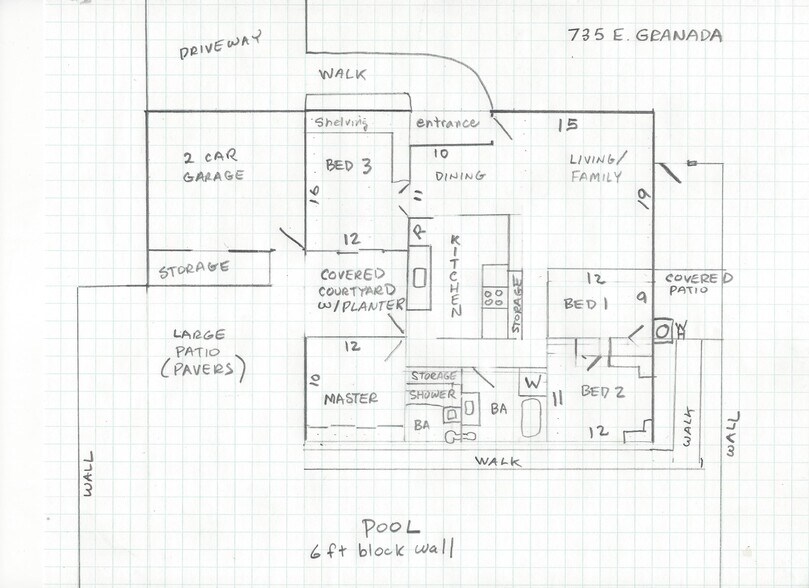 735 E. GRANADA
DRIVEWAY
WALK
Shelving
entrance
15
2 CAR
GARAGE
BED 3
10
DINING
LIVING/
FAMILY
16
11
19
12
R
KITCHEN
STORAGE
COVERED
COURTYARD
W/PLANTER
STORAGE
12
BED 1
9
COVERED
PATIO
WH
LARGE
PATIO
(PAVERS)
12
10
MASTER
STORAGE
SHOWER
BA
BA
W
11
BED 2
12
WALK
WALL
WALL
WALK
POOL
6 ft block wall